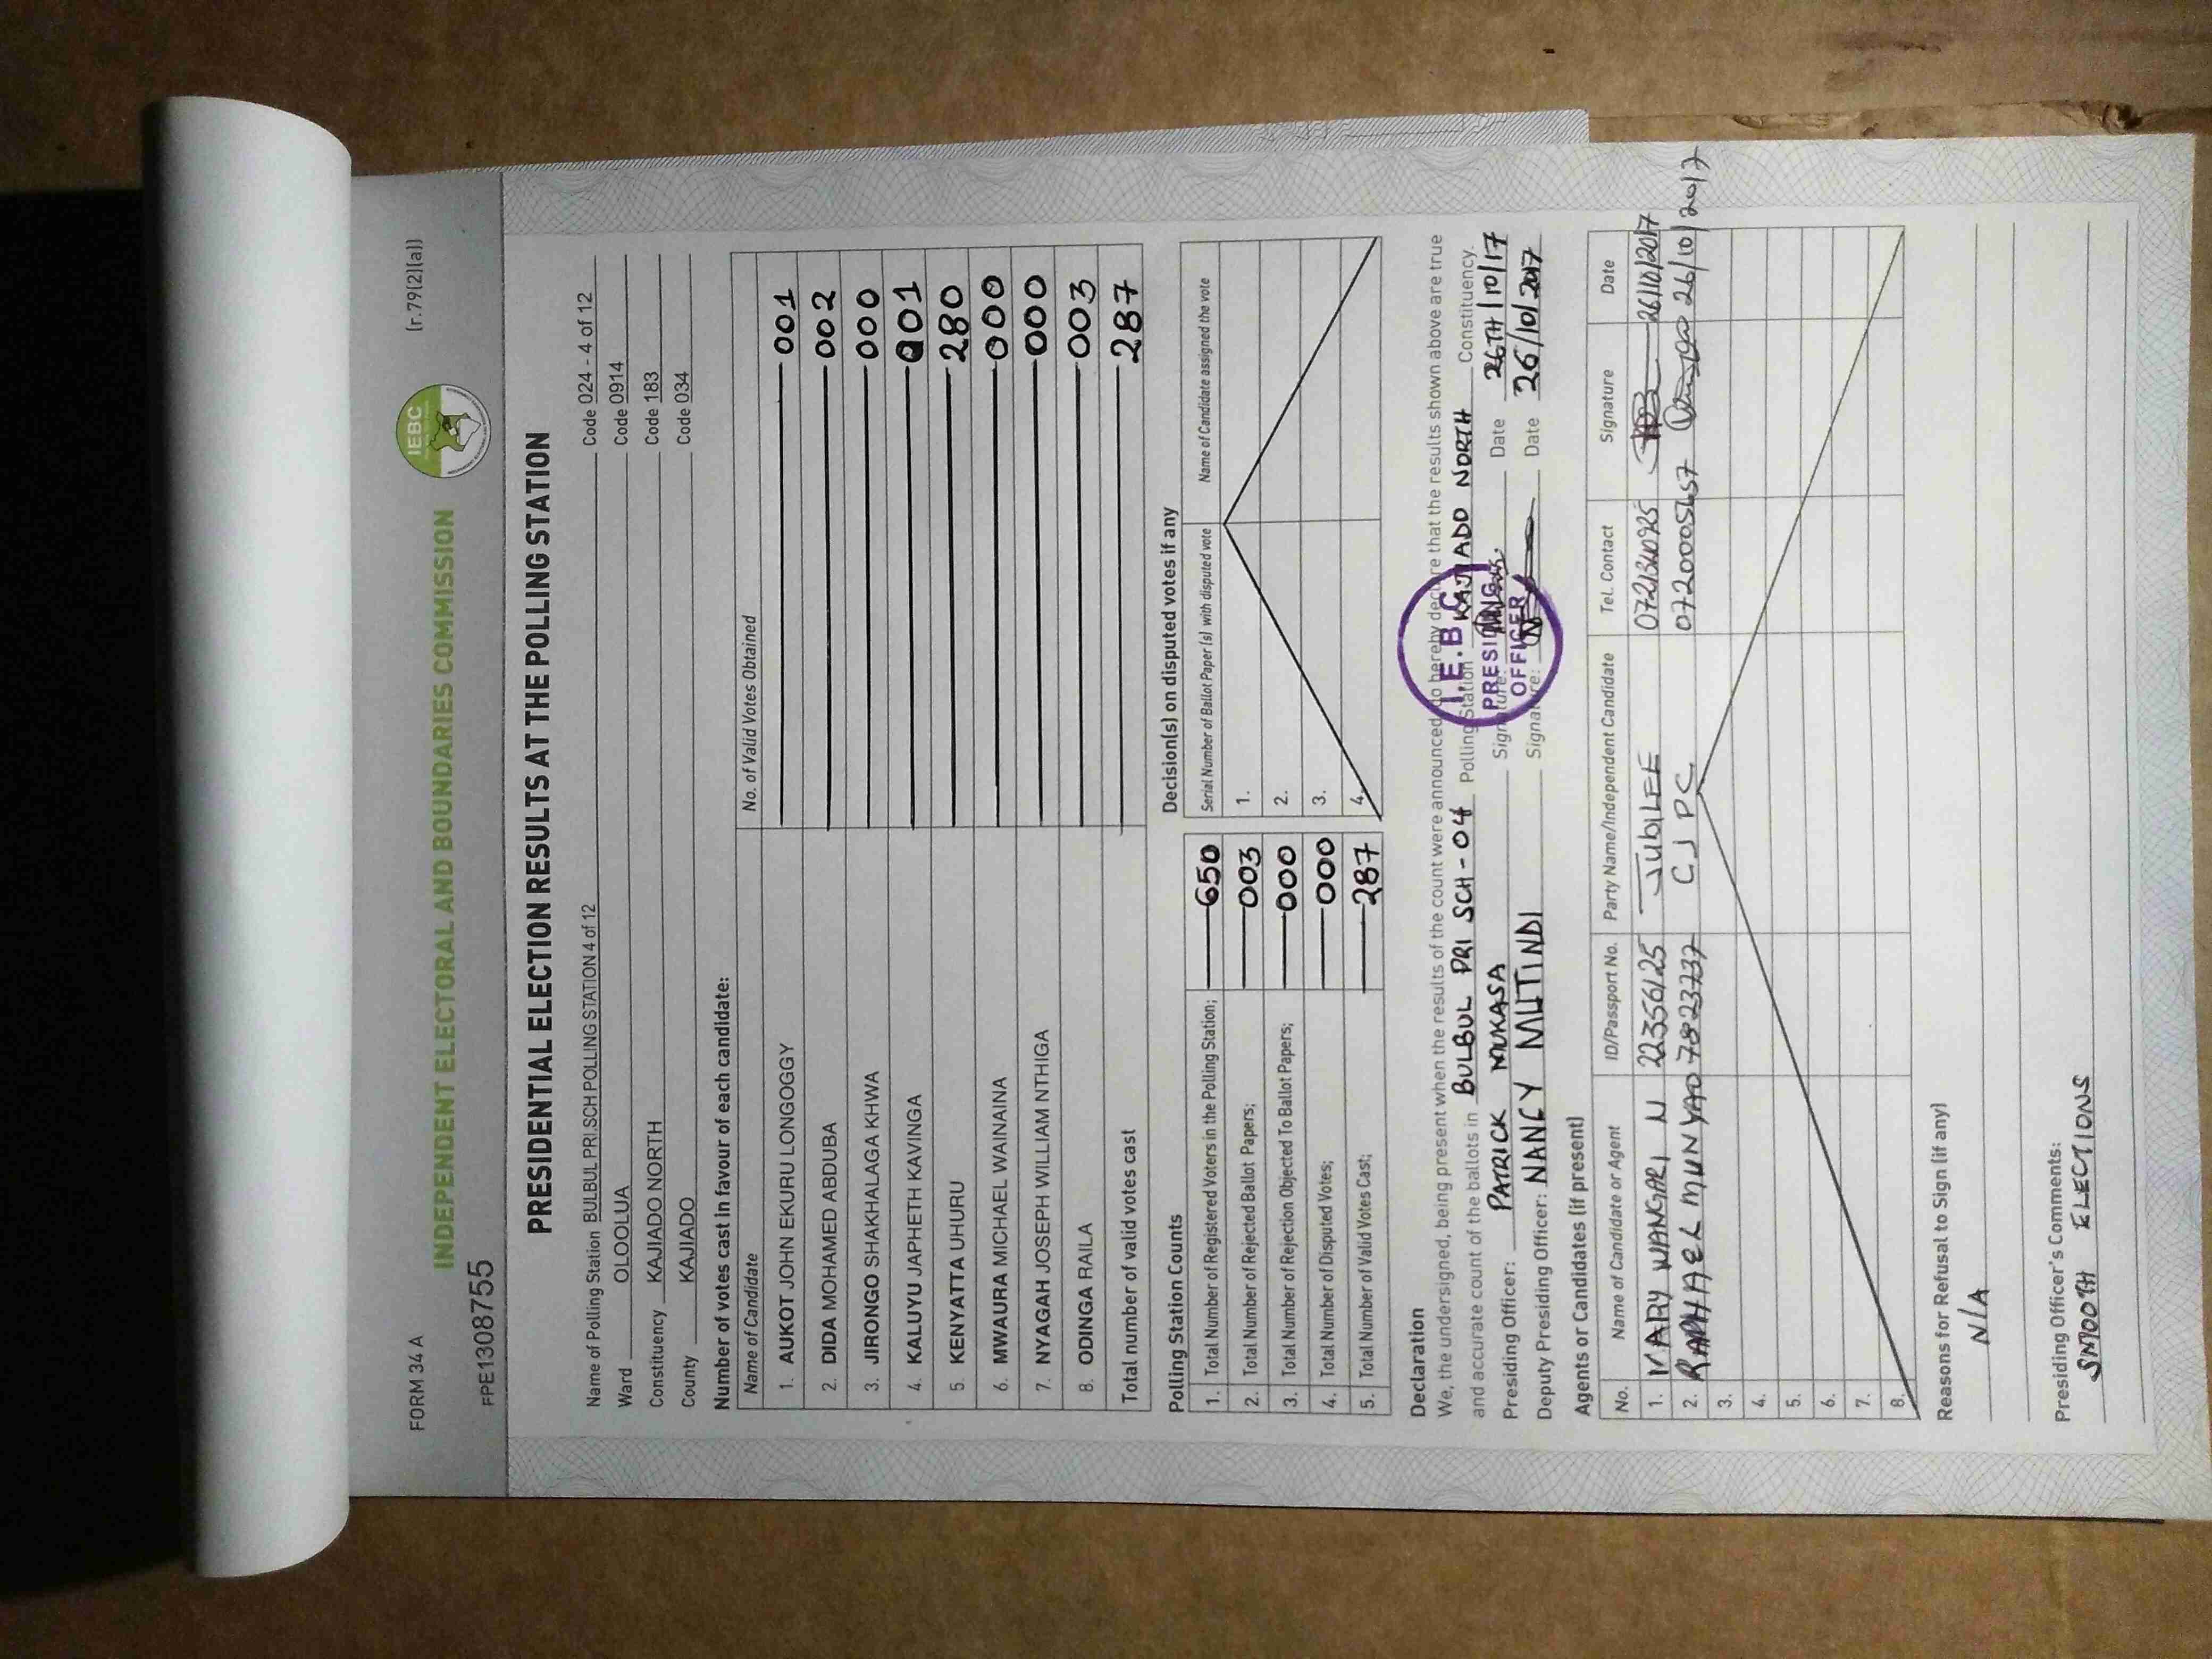 FORM 34 A
(r.79(2)(a))
FPE1308755
INDEPENDENT ELECTORAL AND BOUNDARIES COMMISSION
IEBC
PRESIDENTIAL ELECTION RESULTS AT THE POLLING STATION
Name of Polling Station BULBUL PRI.SCH POLLING STATION 4 of 12 Code 024 - 4 of 12
Ward OLOOLUA Code 0914
Constituency KAJIADO NORTH Code 183
County KAJIADO Code 034
Number of votes cast in favour of each candidate:
Name of Candidate No. of Valid Votes Obtained
1. AUKOT JOHN EKURU LONGOGGY 001
2. DIDA MOHAMED ABDUBA 002
3. JIRONGO SHAKHALAGA KHWA 000
4. KALUYU JAPHETH KAVINGA 001
5. KENYATTA UHURU 280
6. MWAURA MICHAEL WAINAINA 000
7. NYAGAH JOSEPH WILLIAM NTHIGA 000
8. ODINGA RAILA 003
Total number of valid votes cast 287
Polling Station Counts
1. Total Number of Registered Voters in the Polling Station; 650
2. Total Number of Rejected Ballot Papers; 003
3. Total Number of Rejection Objected To Ballot Papers; 000
4. Total Number of Disputed Votes; 000
5. Total Number of Valid Votes Cast; 287
Decision(s) on disputed votes if any
Serial Number of Ballot Paper (s) with disputed vote Name of Candidate assigned the vote
1.
2.
3.
4.
Declaration
We, the undersigned, being present when the results of the count were announced, do hereby declare that the results shown above are true
and accurate count of the ballots in BULBUL PRI SCH - 04 Polling Station KAJIADO NORTH Constituency.
Presiding Officer: PATRICK MUKASA Signature: Date 26TH/10/17
Deputy Presiding Officer: NANCY MUTINDI Signature: Date 26/10/2017
I.E.B.C
PRESIDING
OFFICER
Agents or Candidates (if present)
No. Name of Candidate or Agent ID/Passport No. Party Name/Independent Candidate Tel. Contact Signature Date
1. MARY WANGARI N 22356125 JUBILEE 0721340925 26/10/2017
2. RAPHAEL MUNYAO 7823737 CJPC 26/10/2017
3.
4.
5.
6.
7.
8.
Reasons for Refusal to Sign (if any)
N/A
Presiding Officer's Comments:
SMOOTH ELECTIONS